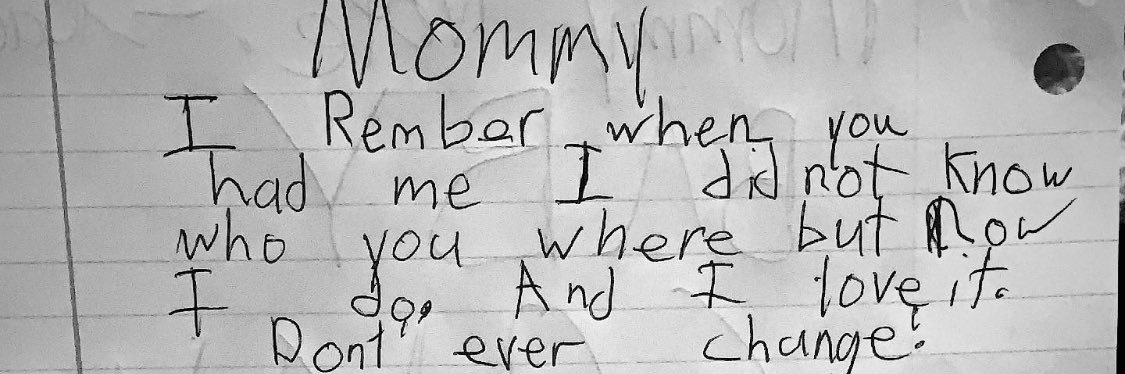 Mommy
I Rember when you
had me I did not know
who you where but Now
I do. And I love it.
Dont ever change!